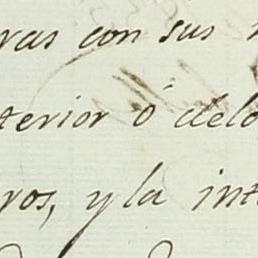 ras con sus
terior ó delo
ros, y la int